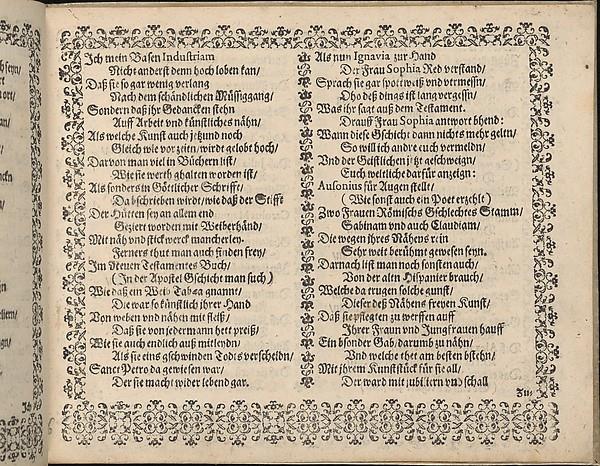 Ich mein Basen Industriam
Nicht anderst denn hoch loben kan/
Daß sie so gar wenig verlang
Nach dem schändlichen Müssiggang/
Sondern daß ihr Gedancken stehn
Auff Arbeit vnd künstliches nähn/
Als welche Kunst auch jetzund noch
Gleich wie vor zeiten/ wirdt gelobt hoch/
Darvon man viel in Büchern list/
Wie sie werth ghalten worden ist/
Als sonders in Göttlicher Schrifft/
Da bschrieben wirdt/ wie daß der Stifft
Der Hütten sey an allem end
Geziert worden mit Weiberhänd/
Mit näh vnd stickwerck mancherley.
Ferners thut man auch finden frey/
Im Neuen Testamentes Buch/
(In der Apostel Gschicht man such)
Wie daß ein Weib Tabea gnannt/
Die war so künstlich ihrer Hand
Von weben vnd nähen mit fleiß/
Daß sie von jedermann hett preiß/
Wie sie auch endlich auß mitleydn/
Als sie eins gschwinden Todts verscheidn/
Sanct Petro da gewisen war/
Der sie macht wider lebend gar.
Als nun Ignavia zur Hand
Der Frau Sophia Red verstand/
Sprach sie gar spottweiß vnd vermessn/
Oho deß dings ist lang vergessn/
Was ihr sagt auß dem Testament.
Drauff Frau Sophia antwort bhend:
Wann diese Gschicht dann nichts mehr geltn/
So will ich andre euch vermeldn/
Vnd der Geistlichen jetzt geschweign/
Euch weltliche darfür anzeign:
Ausonius für Augen stellt/
(Wie sonst auch ein Poet erzehlt)
Zwo Frauen Römischs Gschlechtes Stamm/
Sabinam vnd auch Claudiam/
Die wegen ihres Nähens rein
Sehr weit berühmt gewesen seyn.
Darnach list man noch sonsten auch/
Von der alten Hispanier brauch/
Welche da trugen solche gunst/
Dieser deß Nähens freyen Kunst/
Daß sie pflegten zu werffen auff
Ihrer Fraun vnd Jungfrauen hauff
Ein bsonder Gab/ darumb zu nähn/
Vnd welche thet am besten bstehn/
Mit ihrem Kunststück für sie all/
Der ward mit jubiliern vnd schall
Zu-